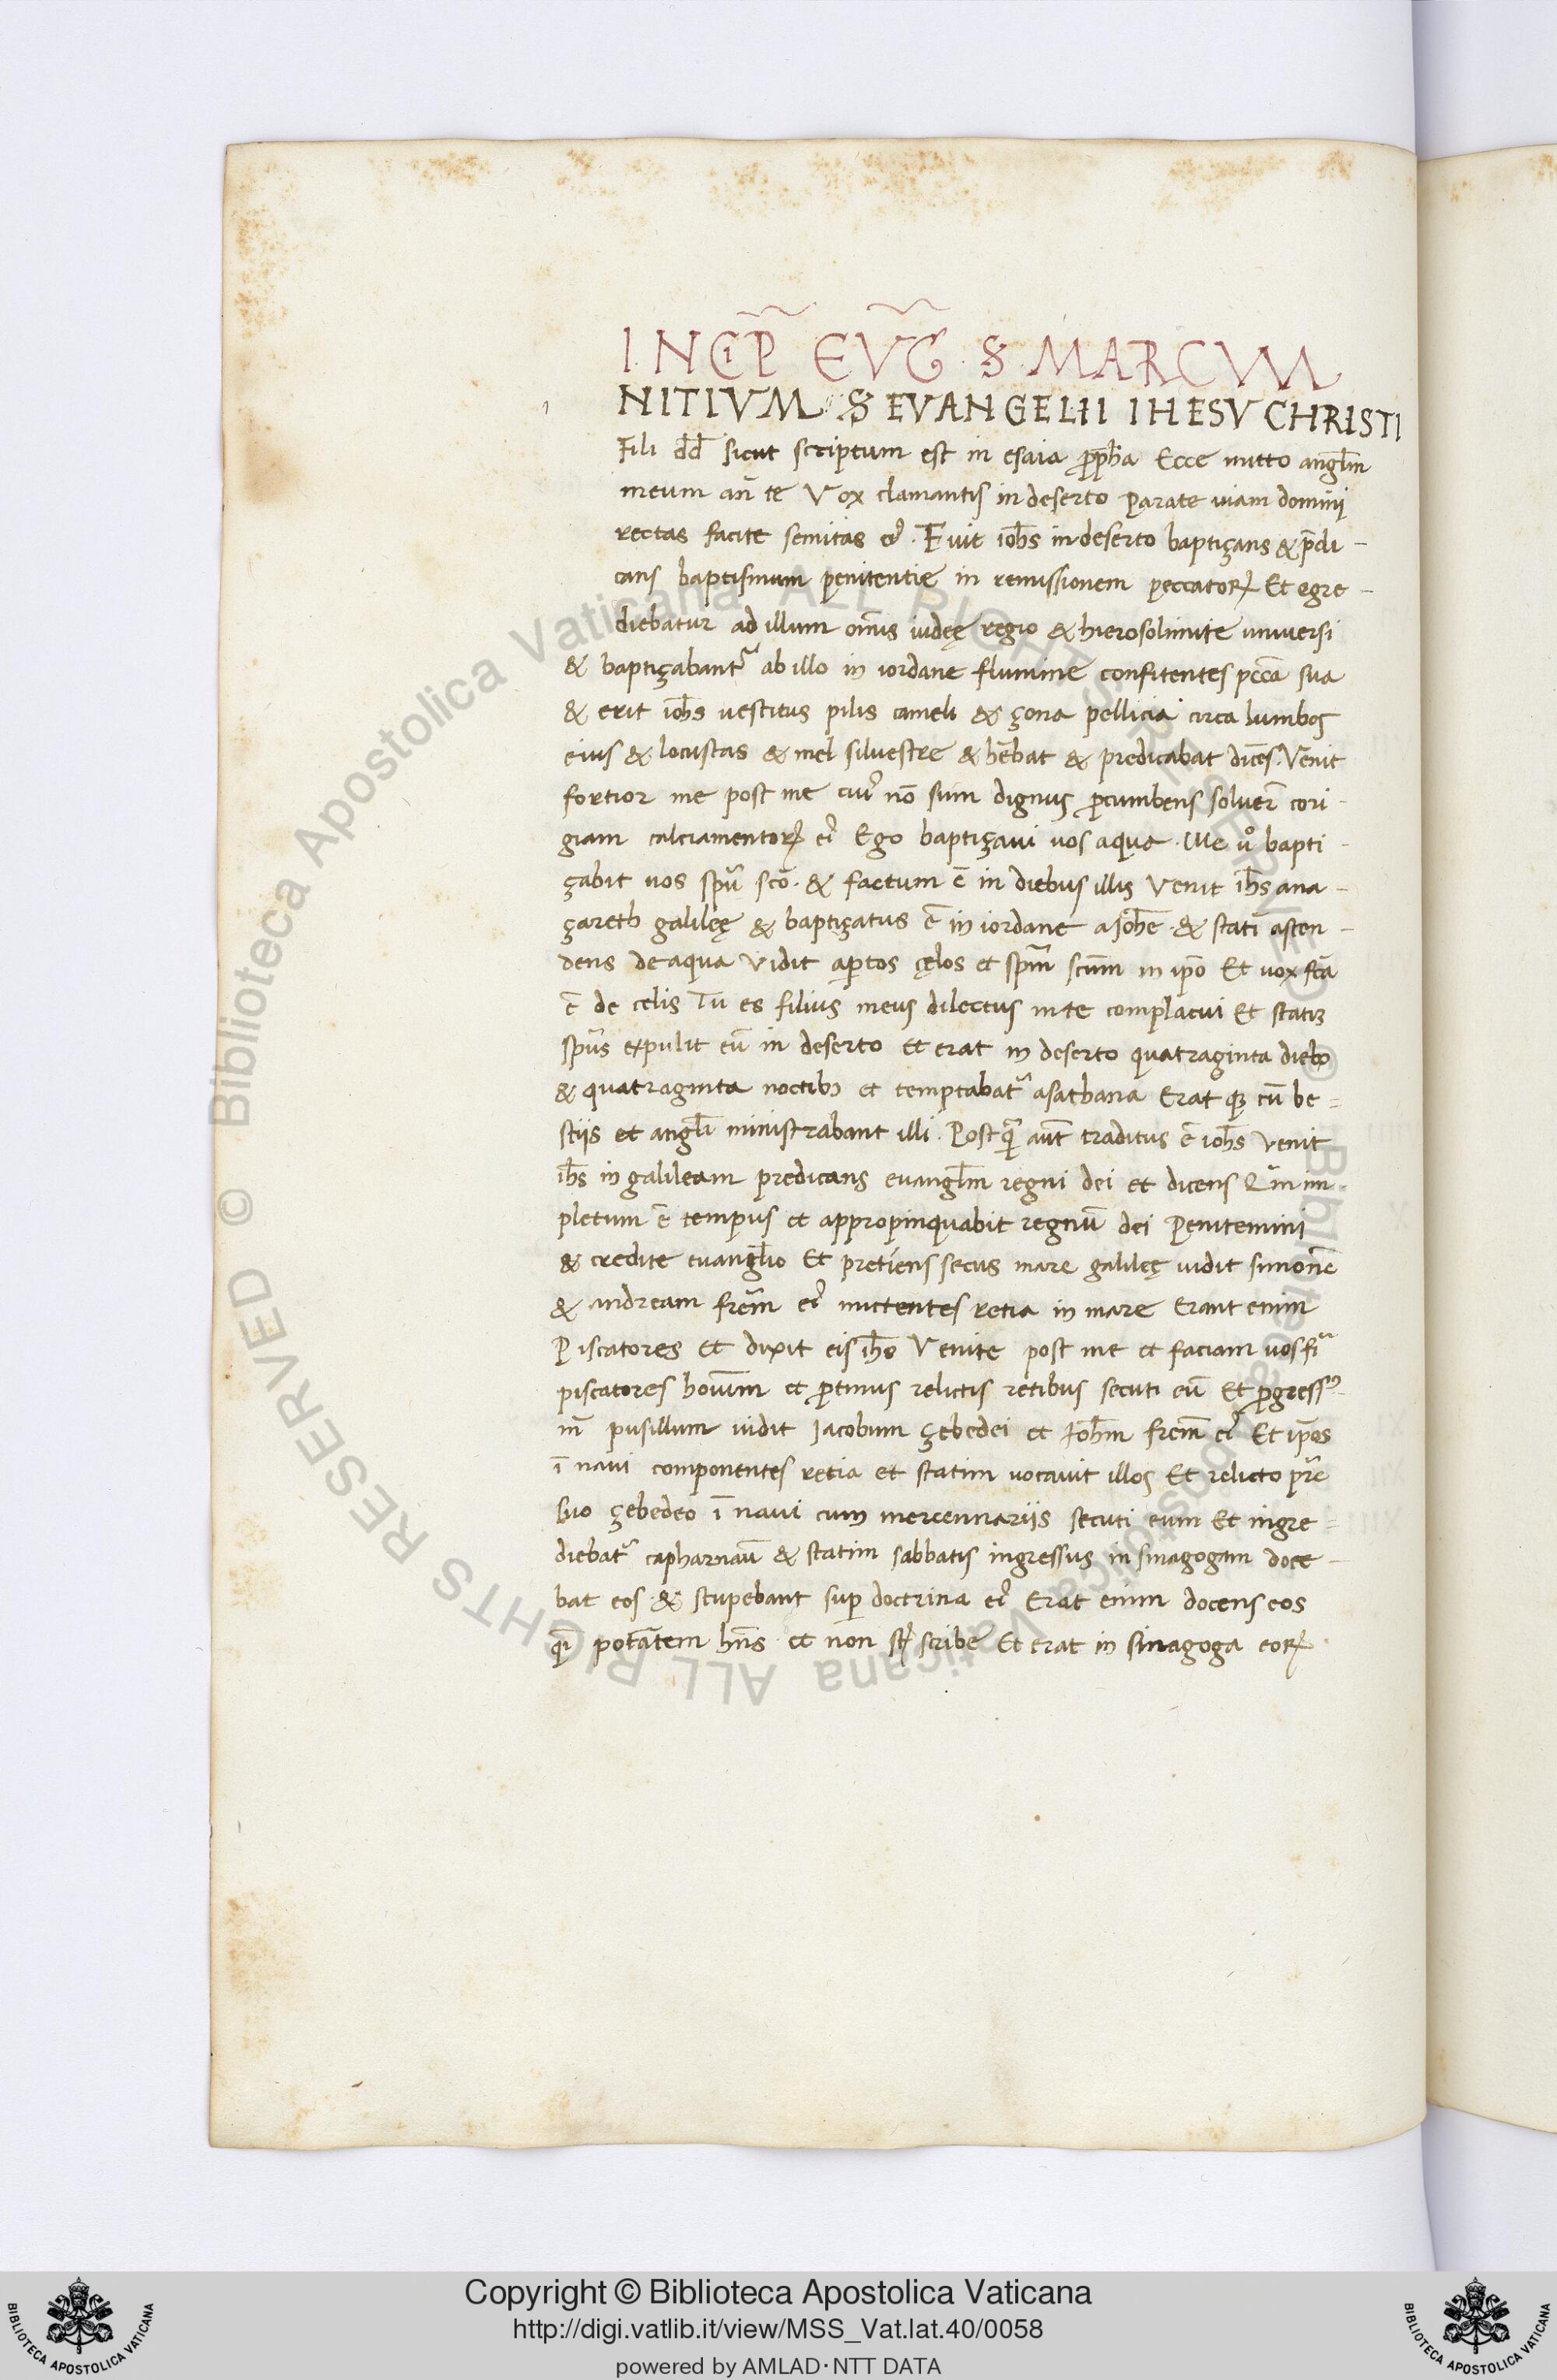 INCIP̃ EVG̃ S. MARCVM
NITIVM S EVANGELII IHESV CHRISTI
Fili dd̄ sicut scriptum est in esaia ꝓph̄a Ecce mitto angl̄m
meum an̄ te Vox clamantis in deserto Parate uiam domini
rectas facite semitas eꝰ. Fuit ioh̄s in deserto baptiçans & p̄di-
cans baptismum penitentię in remissionem peccatoꝝ Et egre-
diebatur ad illum om̄is iudeę regio & hierosolimite uniuersi
& baptiçabantr̃ ab illo in iordane flumine confitentes pcc̄a sua
& erit ioh̄s uestitus pilis cameli & çona pellicia circa lumbos
eius & locustas & mel siluestre & hēbat & predicabat dicēs. Venit
fortior me post me cuiꝰ nō sum dignus ꝓcumbens soluer̄ cori-
giam calciamentoꝝ eiꝰ Ego baptiçaui uos aqua. Ille uº bapti-
çabit uos spū scō. & factum ē in diebus illis Venit ih̄s ana-
çareth galileę & baptiçatus ē in iordane a Joh̄e. & statī ascen-
dens de aqua Vidit aꝑtos cęlos et sp̄m scūm in ip̄o Et uox fc̄a
ē de celis Tu es filius meus dilectus in te complacui Et statiꝫ
sp̄us expulit eū in deserto et erat in deserto quatraginta diebꝰ
& quatraginta noctibꝫ et temptabatr̃ a sathana Erat qꝫ cū be=
stiis et angl̄i ministrabant illi. Postq̄ aūt traditus ē ioh̄s Venit
ih̄s in galileam predicans euangl̄m regni dei et dicens Qm̄ im-
pletum ē tempus et appropinquabit regnū dei Penitemini
& credite euangl̄io Et pretiens secus mare galileę uidit simonē
& andream fr̄em eiꝰ mittentes retia in mare Erant enim
Piscatores et dixit eis ih̄s Venite post me et faciam uos fi
piscatores houīm et ꝓtinus relictis retibus secuti eū Et ꝓgressꝰ
in̄ pusillum uidit Jacobum çebedei et Joh̄m frem̄ eiꝰ Et ip̄os
ī naui componentes retia et statim uocauit illos Et relicto pr̄e
suo çebedeo ī naui cum mercennariis secuti eum Et ingre=
diebatr̃ capharnaū & statim sabbatis ingressus in sinagogam doce-
bat eos & stupebant suꝑ doctrina eiꝰ Erat enim docens eos
qī potātem hn̄s et non sct̄ scribe Et erat in sinagoga eoꝝ
© Biblioteca Apostolica Vaticana ALL RIGHTS RESERVED
© Biblioteca Apostolica Vaticana ALL RIGHTS RESERVED
Copyright © Biblioteca Apostolica Vaticana
http://digi.vatlib.it/view/MSS_Vat.lat.40/0058
powered by AMLAD·NTT DATA
BIBLIOTECA APOSTOLICA VATICANA
BIBLIOTECA APOSTOLICA VATICANA